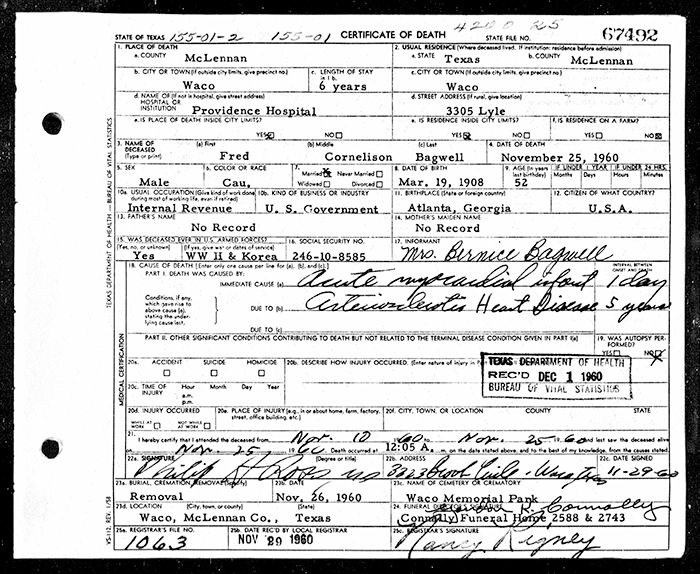 STATE OF TEXAS 155-01-2 155-01 CERTIFICATE OF DEATH 4200 25 STATE FILE NO. 67492
1. PLACE OF DEATH 2. USUAL RESIDENCE (Where deceased lived. If institution: residence before admission)
a. COUNTY McLennan a. STATE Texas b. COUNTY McLennan
b. CITY OR TOWN (If outside city limits, give precinct no.) Waco c. LENGTH OF STAY in 1 b. 6 years c. CITY OR TOWN (If outside city limits, give precinct no.) Waco
d. NAME OF (If not in hospital, give street address) HOSPITAL OR INSTITUTION Providence Hospital d. STREET ADDRESS (If rural, give location) 3305 Lyle
e. IS PLACE OF DEATH INSIDE CITY LIMITS? YES NO e. IS RESIDENCE INSIDE CITY LIMITS? YES NO f. IS RESIDENCE ON A FARM? YES NO
3. NAME OF DECEASED (Type or print) (a) First Fred (b) Middle Cornelison (c) Last Bagwell 4. DATE OF DEATH November 25, 1960
5. SEX Male 6. COLOR OR RACE Cau. 7. Married Never Married Widowed Divorced 8. DATE OF BIRTH Mar. 19, 1908 9. AGE (In years last birthday) 52 IF UNDER 1 YEAR Months Days IF UNDER 24 HRS. Hours Minutes
10a. USUAL OCCUPATION (Give kind of work done during most of working life, even if retired) Internal Revenue 10b. KIND OF BUSINESS OR INDUSTRY U. S. Government 11. BIRTHPLACE (State or foreign country) Atlanta, Georgia 12. CITIZEN OF WHAT COUNTRY? U.S.A.
13. FATHER'S NAME No Record 14. MOTHER'S MAIDEN NAME No Record
15. WAS DECEASED EVER IN U.S. ARMED FORCES? Yes (If yes, give war or dates of service) WW II & Korea 16. SOCIAL SECURITY NO. 246-10-8585 17. INFORMANT Mrs. Bernice Bagwell
18. CAUSE OF DEATH [Enter only one cause per line for (a), (b), and (c).] INTERVAL BETWEEN ONSET AND DEATH
PART I. DEATH WAS CAUSED BY: IMMEDIATE CAUSE (a) Acute myocardial infarct 1 day
Conditions, if any, which gave rise to above cause (a), stating the underlying cause last. DUE TO (b) Heart Disease 5 years
DUE TO (c)
PART II. OTHER SIGNIFICANT CONDITIONS CONTRIBUTING TO DEATH BUT NOT RELATED TO THE TERMINAL DISEASE CONDITION GIVEN IN PART I(a) 19. WAS AUTOPSY PERFORMED? YES NO
20a. ACCIDENT SUICIDE HOMICIDE 20b. DESCRIBE HOW INJURY OCCURRED. (Enter nature of injury in Part
TEXAS DEPARTMENT OF HEALTH
REC'D DEC 1 1960
BUREAU OF VITAL STATISTICS
20c. TIME OF INJURY Hour a.m. p.m. Month Day Year
20d. INJURY OCCURRED WHILE AT WORK NOT WHILE AT WORK 20e. PLACE OF INJURY (e.g., in or about home, farm, factory, street, office building, etc.) 20f. CITY, TOWN, OR LOCATION COUNTY STATE
21. I hereby certify that I attended the deceased from Nov. 10 1960 to Nov. 25 1960 and last saw the deceased alive
on Nov. 25 1960 Death occurred at 12:05 A. m. on the date stated above, and to the best of my knowledge, from the causes stated.
22a. SIGNATURE Philip (Degree or title) 22b. ADDRESS Waco 22c. DATE SIGNED 11-29-60
23a. BURIAL, CREMATION, REMOVAL (Specify) Removal 23b. DATE Nov. 26, 1960 23c. NAME OF CEMETERY OR CREMATORY Waco Memorial Park
23d. LOCATION Waco, McLennan Co., Texas 24. FUNERAL DIRECTOR'S SIGNATURE R. Connally Connally Funeral Home 2588 & 2743
25a. REGISTRAR'S FILE NO. 1063 25b. DATE REC'D BY LOCAL REGISTRAR NOV 29 1960 25c. REGISTRAR'S SIGNATURE Nancy Rigney
TEXAS DEPARTMENT OF HEALTH — BUREAU OF VITAL STATISTICS
MEDICAL CERTIFICATION
VS-112, REV. 1/58